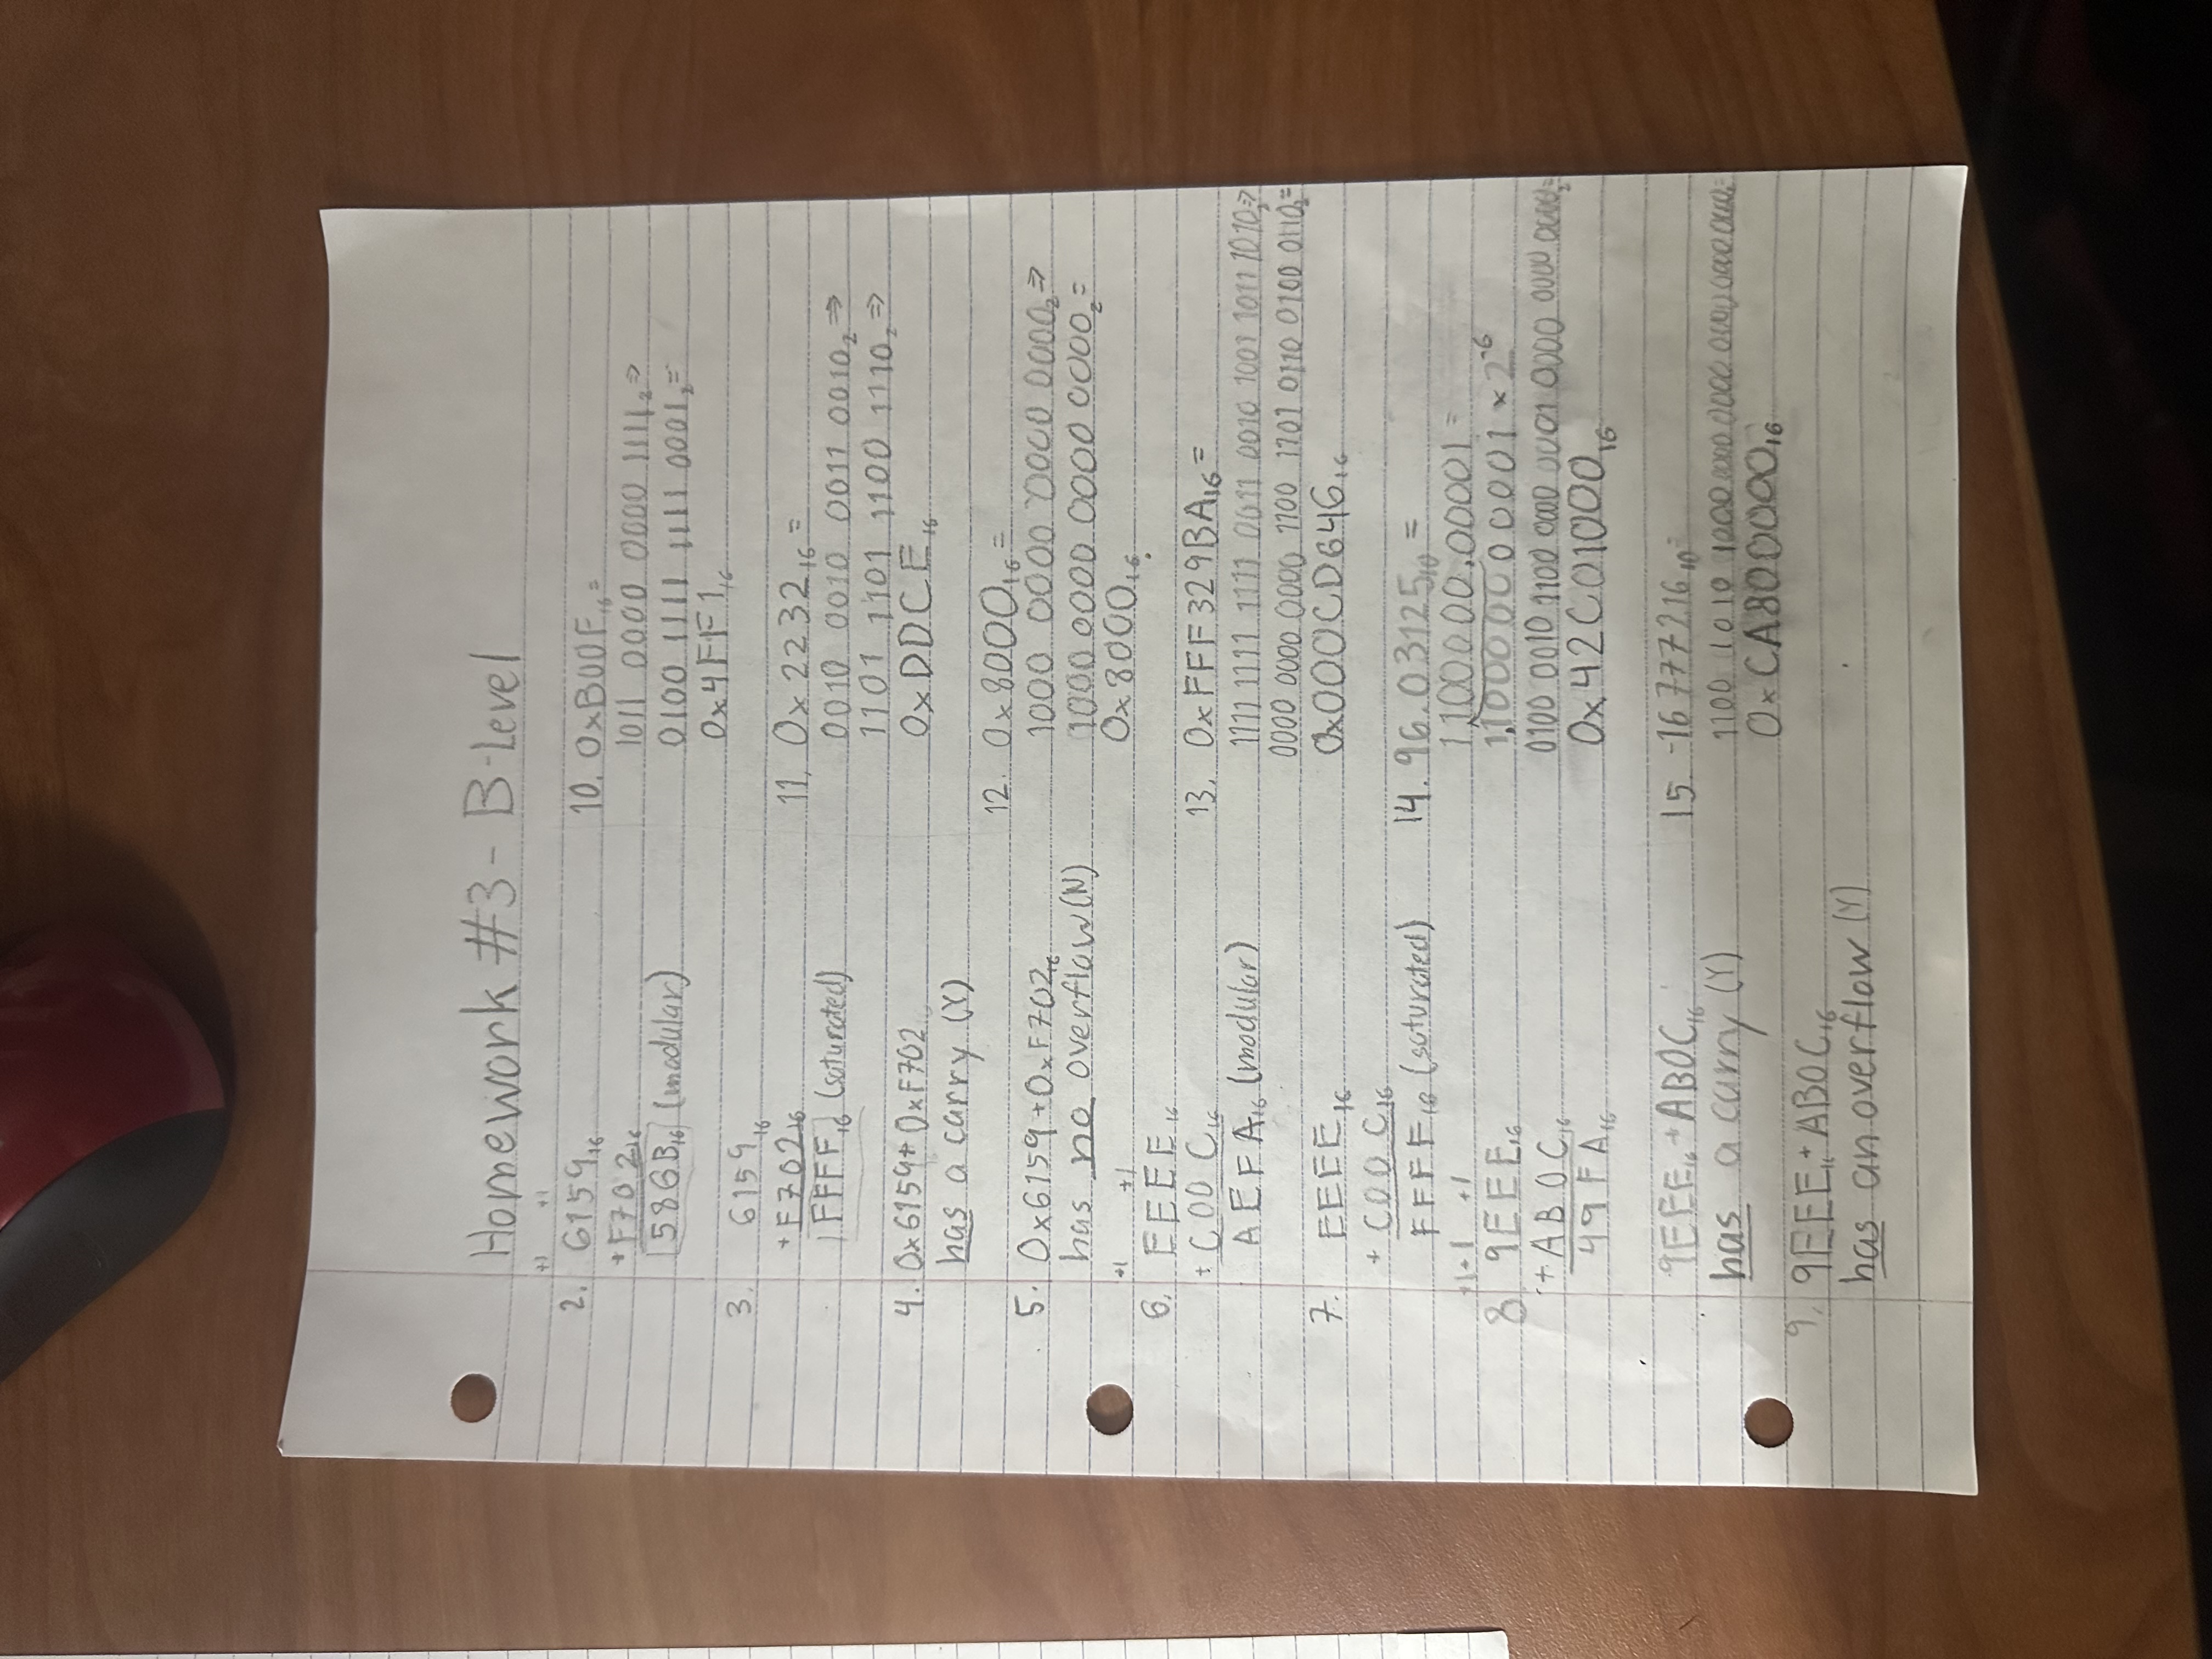 Homework #3 - B-Level
+1 +1
2. 6159₁₆
+F702₁₆
586B₁₆ (modular)
3. 6159₁₆
+F702₁₆
FFFF₁₆ (saturated)
4. 0x6159+0xF702
has a carry (Y)
5. 0x6159+0xF702₁₆
has no overflow (N)
+1 +1
6. EEEE₁₆
+C00C₁₆
AEFA₁₆ (modular)
7. EEEE₁₆
+C00C₁₆
FFFF₁₆ (saturated)
+1+1 +1
8. 9EEE₁₆
+AB0C₁₆
49FA₁₆
9EEE₁₆+AB0C₁₆
has a carry (Y)
9. 9EEE₁₆+AB0C₁₆
has an overflow (Y)
10. 0xB00F₁₆=
1011 0000 0000 1111₂⇒
0100 1111 1111 0001₂=
0x4FF1₁₆
11. 0x2232₁₆=
0010 0010 0011 0010₂⇒
1101 1101 1100 1110₂⇒
0xDDCE₁₆
12. 0x8000₁₆=
1000 0000 0000 0000₂⇒
1000 0000 0000 0000₂=
0x8000₁₆
13. 0xFFF329BA₁₆=
1111 1111 1111 0011 0010 1001 1011 1010₂⇒
0000 0000 0000 1100 1101 0110 0100 0110₂=
0x000CD646₁₆
14. 96.03125₁₀=
1100000.00001=
1.10000000001×2⁻⁶
0100 0010 1100 0000 0001 0000 0000 0000₂=
0x42C01000₁₆
15. -16777216₁₀=
1100 1010 1000 0000 0000 0000 0000 0000₂=
0xCA800000₁₆